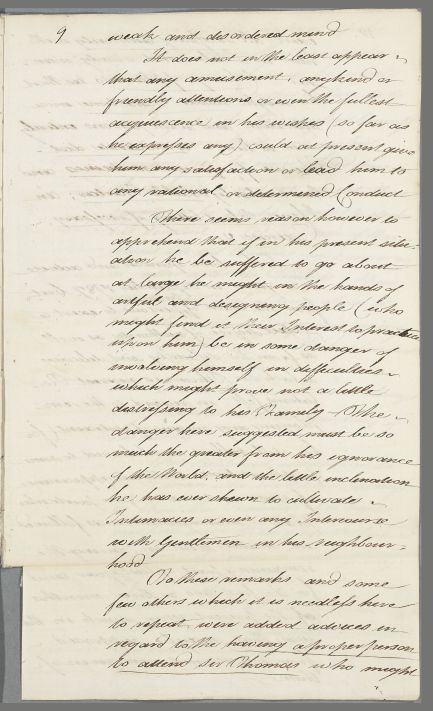 9
weak and disordered mind
It does not in the least appear
that any amusement, any kind or
friendly attentions or even the fullest
acquiescence in his wishes (so far as
he expresses any) could at present give
him any satisfaction or lead him to
any rational or determined Conduct
There seems reason however to
apprehend that if in his present situ-
ation he be suffered to go about
at large he might in the hands of
artful and designing people (who
might find it their Interest to practice
upon him) be in some danger of
involving himself in difficulties
which might prove not a little
distressing to his Family – The
danger here suggested must be so
much the greater from his ignorance
of the World, and the little inclination
he has ever shewn to cultivate
Intimacies or even any Intercourse
with Gentlemen in his neighbour-
hood
To these remarks and some
few others which it is needless here
to repeat were added advices in
regard to the having a proper person
to attend Sir Thomas who might